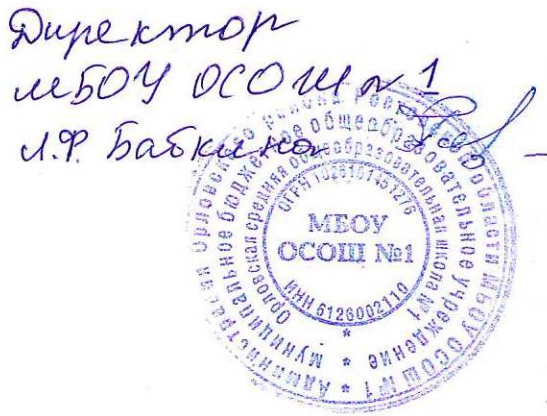 Директор
МБОУ ОСОШ № 1
Л.Ф. Бабкина
Администрация Орловского района Ростовской области МБОУ ОСОШ №1
Муниципальное бюджетное общеобразовательное учреждение
Орловская средняя общеобразовательная школа №1
ОГРН 1026161451276
МБОУ
ОСОШ №1
ИНН 6126002110